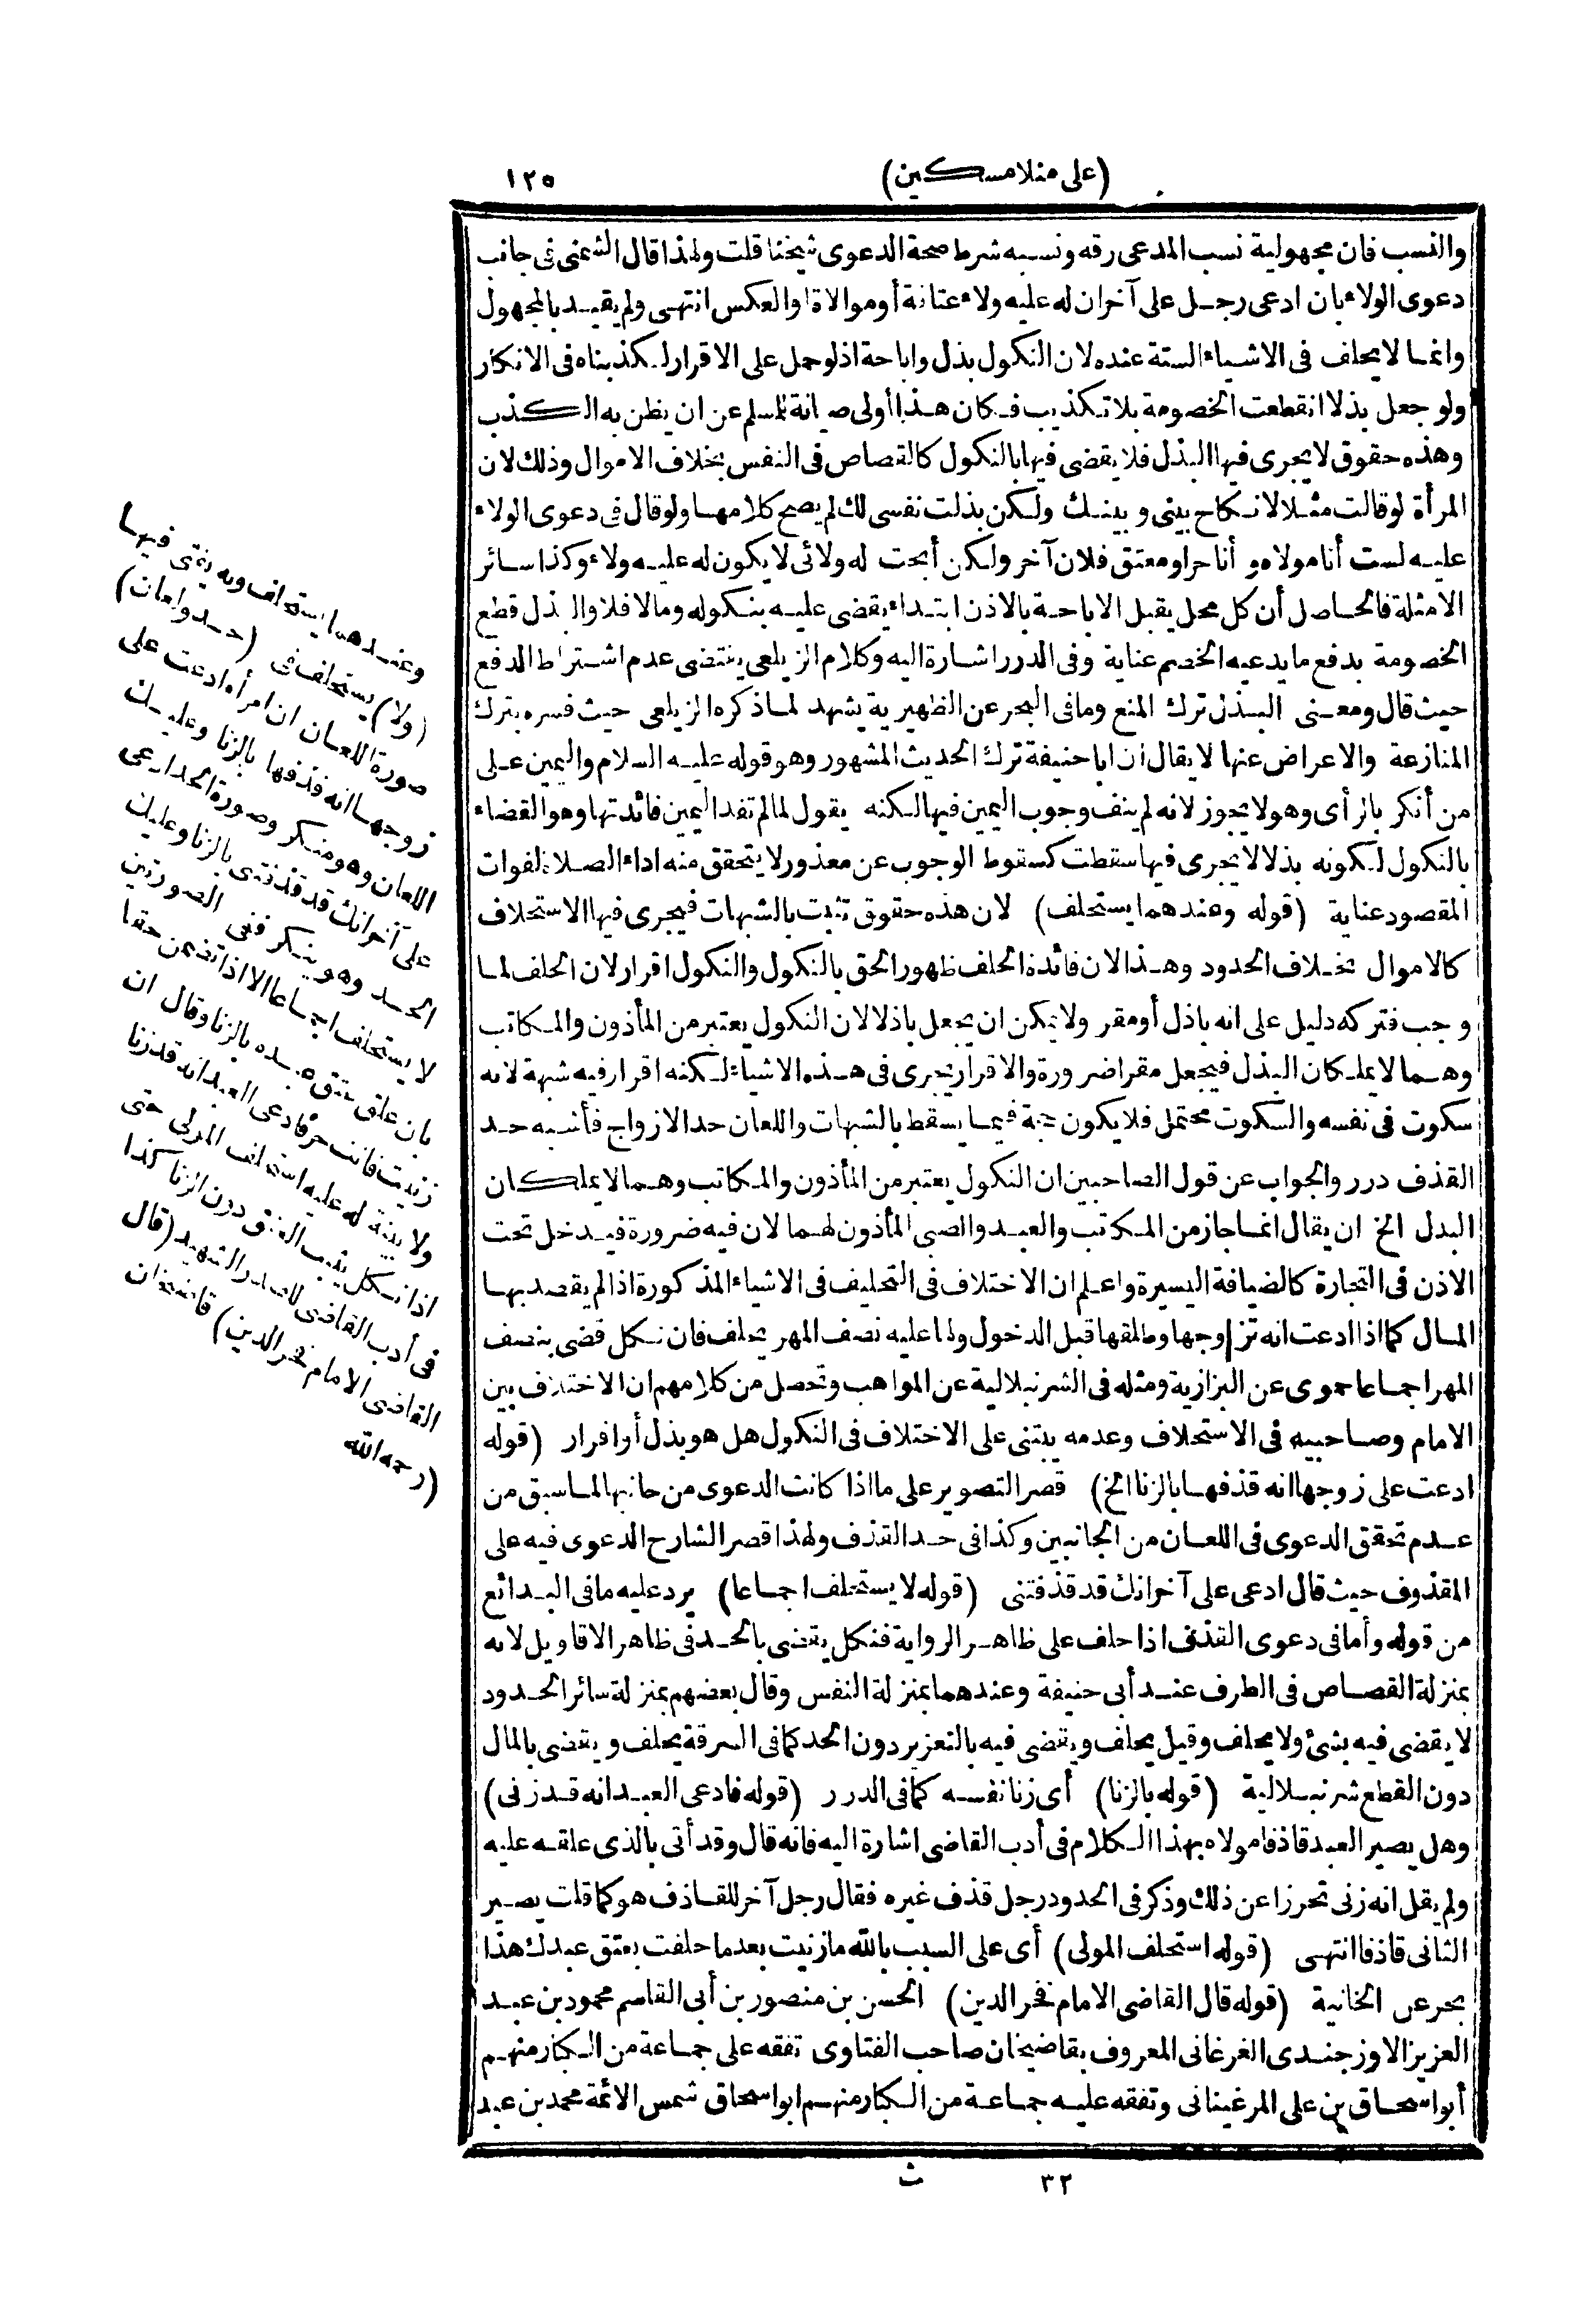 (على منلامسكين)
١٢٥
والنسب فان مجهولية نسب المدعى رقه ونسبه شرط صحة الدعوى شيخنا قلت ولهذا قال الشمنى فى جانب
دعوى الولاء بان ادعى رجل على آخر ان له عليه ولاء عتاقة أو موالاة او العكس انتهى ولم يقيد بالمجهول
وانما لا يحلف فى الاشياء الستة عنده لان النكول بذل واباحة اذ لو حمل على الاقرار لكذبناه فى الانكار
ولو جعل بذلا انقطعت الخصومة بلا تكذيب فكان هذا أولى صيانة للمسلم عن ان يظن به الكذب
وهذه حقوق لا يجرى فيها البذل فلا يقضى فيها بالنكول كالقصاص فى النفس بخلاف الاموال وذلك لان
المرأة لو قالت مثلا لا نكاح بينى وبينك ولكن بذلت نفسى لك لم يصح كلامها ولو قال فى دعوى الولاء
عليه لست أنا مولاه و أنا حر او معتق فلان آخر ولكن أبحت له ولائى لا يكون له عليه ولاء وكذا سائر
الامثلة فالحاصل أن كل محل يقبل الاباحة بالاذن ابتداء يقضى عليه بنكوله وما لا فلا والبذل قطع
الخصومة بدفع ما يدعيه الخصم عناية وفى الدرر اشارة اليه وكلام الزيلعى يقتضى عدم اشتراط الدفع
حيث قال ومعنى البذل ترك المنع وما فى البحر عن الظهيرية يشهد لما ذكره الزيلعى حيث فسره بترك
المنازعة والاعراض عنها لا يقال ان ابا حنيفة ترك الحديث المشهور وهو قوله عليه السلام واليمين على
من أنكر بالرأى وهو لا يجوز لانه لم ينف وجوب اليمين فيها لكنه يقول لما لم تفد اليمين فائدتها وهو القضاء
بالنكول لكونه بذلا لا يجرى فيها سقطت كسقوط الوجوب عن معذور لا يتحقق منه اداء الصلاة لفوات
المقصود عناية (قوله وعندهما يستحلف) لان هذه حقوق تثبت بالشبهات فيجرى فيها الاستحلاف
كالاموال بخلاف الحدود وهذا لان فائدة الحلف ظهور الحق بالنكول والنكول اقرار لان الحلف لما
وجب فتركه دليل على انه باذل أو مقر ولا يمكن ان يجعل باذلا لان النكول يعتبر من المأذون والمكاتب
وهما لا يملكان البذل فيجعل مقرا ضرورة والاقرار يجرى فى هذه الاشياء لكنه اقرار فيه شبهة لانه
سكوت فى نفسه والسكوت محتمل فلا يكون حجة فيما يسقط بالشبهات واللعان حد الازواج فأشبه حد
القذف درر والجواب عن قول الصاحبين ان النكول يعتبر من المأذون والمكاتب وهما لا يملكان
البدل الخ ان يقال انما جاز من المكتب والعبد والصبى المأذون لهما لان فيه ضرورة فيدخل تحت
الاذن فى التجارة كالضيافة اليسيرة واعلم ان الاختلاف فى التحليف فى الاشياء المذكورة اذا لم يقصد بها
المال كما اذا ادعت انه تزوجها وطلقها قبل الدخول ولها عليه نصف المهر يحلف فان نكل قضى بنصف
المهر اجماعا حموى عن البزازية ومثله فى الشرنبلالية عن المواهب وتحصل من كلامهم ان الاختلاف بين
الامام وصاحبيه فى الاستحلاف وعدمه يبتنى على الاختلاف فى النكول هل هو بذل أو اقرار (قوله
ادعت على زوجها انه قذفها بالزنا الخ) قصر التصوير على ما اذا كانت الدعوى من جانبها لما سبق من
عدم تحقق الدعوى فى اللعان من الجانبين وكذا فى حد القذف ولهذا قصر الشارح الدعوى فيه على
المقذوف حيث قال ادعى على آخر انك قد قذفتنى (قوله لا يستحلف اجماعا) يرد عليه ما فى البدائع
من قوله وأما فى دعوى القذف اذا حلف على ظاهر الرواية فنكل يقضى بالحد فى ظاهر الاقاويل لانه
بمنزلة القصاص فى الطرف عند أبى حنيفة وعندهما بمنزلة النفس وقال بعضهم بمنزلة سائر الحدود
لا يقضى فيه بشئ ولا يحلف وقيل يحلف ويقضى فيه بالتعزير دون الحد كما فى السرقة يحلف ويقضى بالمال
دون القطع شرنبلالية (قوله بالزنا) أى زنا نفسه كما فى الدرر (قوله فادعى العبد انه قد زنى)
وهل يصير العبد قاذفا مولاه بهذا الكلام فى أدب القاضى اشارة اليه فانه قال وقد أتى بالذى علقه عليه
ولم يقل انه زنى تحرزا عن ذلك وذكر فى الحدود رجل قذف غيره فقال رجل آخر للقاذف هو كما قلت يصير
الثانى قاذفا انتهى (قوله استحلف المولى) أى على السبب بالله ما زنيت بعدما حلفت بعتق عبدك هذا
بحر عن الخانية (قوله قال القاضى الامام فخر الدين) الحسن بن منصور بن أبى القاسم محمود بن عبد
العزيز الاوزجندى الفرغانى المعروف بقاضيخان صاحب الفتاوى تفقه على جماعة من الكبار منهم
أبو اسحاق بن على المرغينانى وتفقه عليه جماعة من الكبار منهم ابو اسحاق شمس الائمة محمد بن عبد
٣٢ ث
وعندهما يستحلف وبه يفتى فيها
(ولا) يستحلف فى (حد ولعان)
صورة اللعان ان امرأة ادعت على
زوجها انه قذفها بالزنا وعليك
اللعان وهو منكر وصورة الحد ادعى
على آخر انك قد قذفتنى بالزنا وعليك
الحد وهو ينكر ففى الصورتين
لا يستحلف اجماعا الا اذا تضمن حقا
بان علق عتق عبده بالزنا وقال ان
زنيت فانت حر فادعى العبد انه قد زنا
ولا بينة له عليه استحلف المولى حتى
اذا نكل يثبت العتق دون الزنا كذا
فى أدب القاضى للصدر الشهيد (قال
القاضى الامام فخر الدين) قاضيخان
(رحمه الله